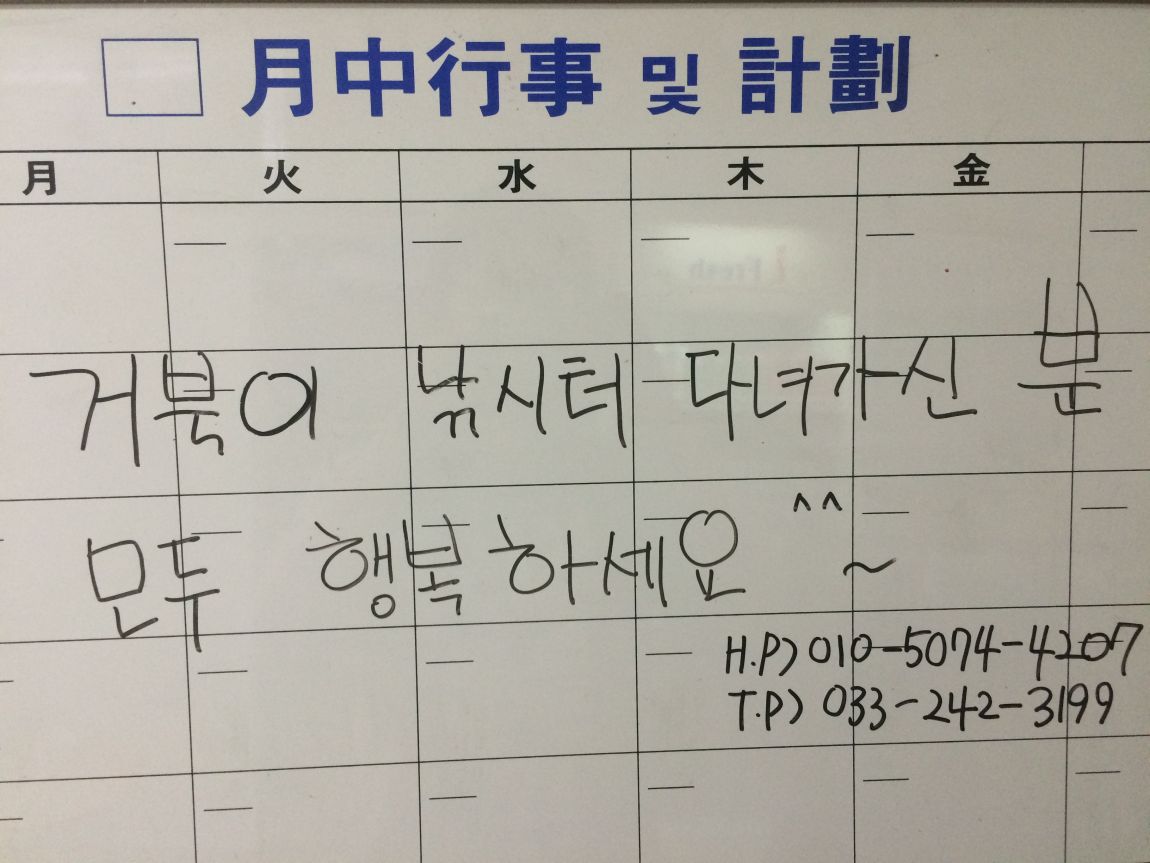 月中行事 및 計劃
月 火 水 木 金
거북이 낚시터 다녀가신 분
모두 행복하세요 ^^ ~
H.P) 010-5074-4207
T.P) 033-242-3199